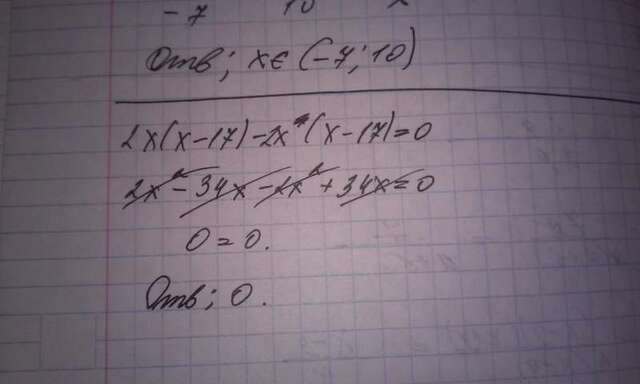 -7 10
Отв; x∈(-7;10)
2x(x-17)-2x(x-17)=0
2x²-34x-2x²+34x=0
0=0.
Отв; 0.